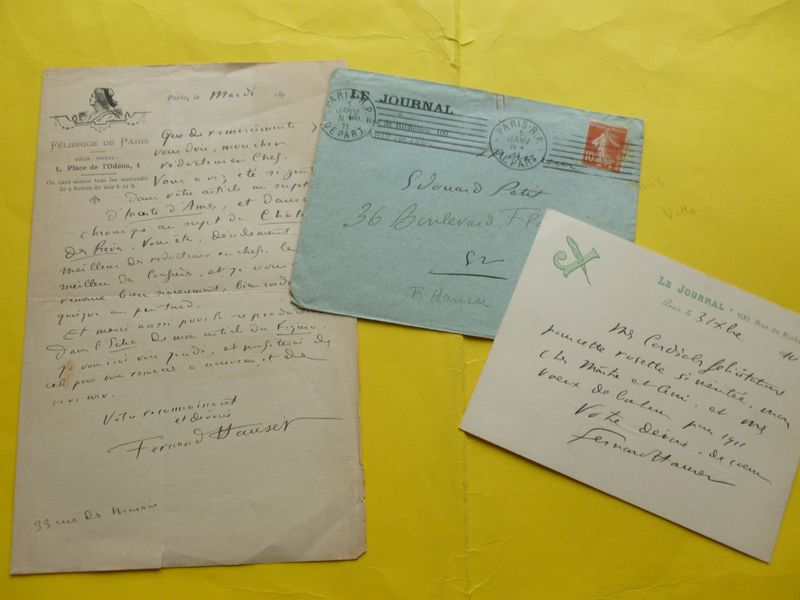 Paris, le Mardi 189
FÉLIBRIGE DE PARIS
SIÈGE SOCIAL:
1, Place de l'Odéon, 1
On tient séance tous les mercredis
de 9 heures du soir à 11 h.
Que de remerciements je
vous dois, mon cher
rédacteur en chef.
Vous avez été si gentil
dans votre article au sujet
d'
d'Âmes, et dans
chronique au sujet du
des Rêves. Vous êtes, décidément, le
meilleur des rédacteurs en chef, le
meilleur des confrères, et je vous
remercie bien sincèrement, bien cordialement
quoique un peu tard.
Et merci aussi pour la reproduction
dans l'Echo de mon article du Figaro.
Je vous irai voir jeudi, et profiterai de
cela pour vous remercier à nouveau, et de
vive voix.
Votre reconnaissant
et dévoué
Fernand Hauser
33 rue des
LE JOURNAL
100, Rue de Richelieu, 100
PARIS R.P.
1
JANV
11
DEPART
PARIS R.P.
1
JANV
DEPART
10
Edouard Petit
36 Boulevard
EV
F. Hauser
LE JOURNAL - 100, Rue de Riche
Paris le 31 Xbre 10
Mes cordiales félicitations
pour cette rosette si méritée, mon
cher Maître et ami, et mes
vœux de bonheur pour 1911
Votre dévoué, de cœur
Fernand Hauser